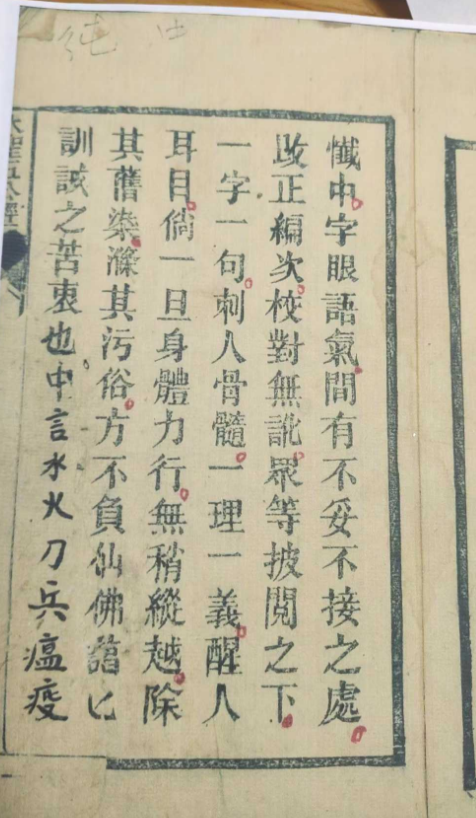 純
懺中字眼語氣間有不妥不接之處
改正編次校對無訛眾等披閱之下
一字一句刺人骨髓一理一義醒人
耳目倘一旦身體力行無稍縱越除
其舊染滌其污俗方不負仙佛匕
訓誡之苦衷也中言水火刀兵瘟疫
聖五公經